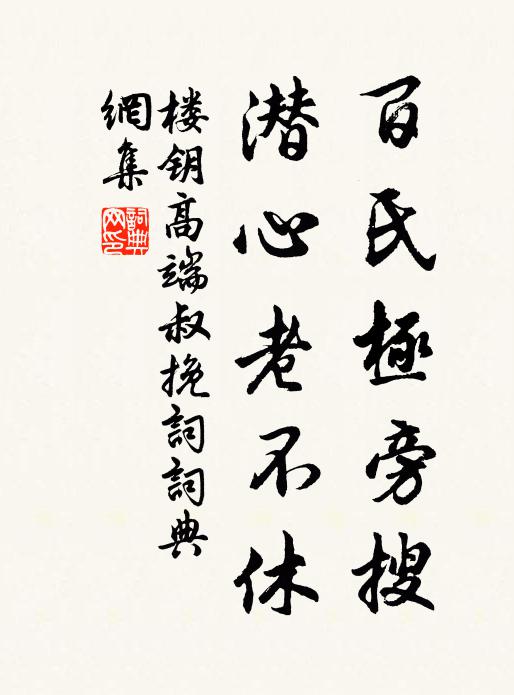 百氏極旁搜
潛心老不休
楼钥高端叔挽詞詞典
網集
詞典
网印